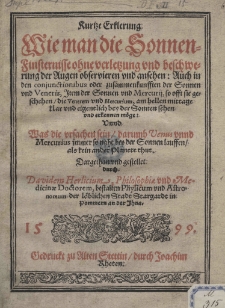 Kurtze Erklerung
Wie man die Sonnen-
Finsternisse ohne verletzung vnd beschwe-
rung der Augen observieren vnd ansehen: Auch in
den conjunctionibus oder zusammenkunfften der Sonnen
vnd Veneris, Item der Sonnen vnd Mercurij, so offt sie ge-
schehen, die Venerem vnd Mercurium, am hellen mittage
klar vnd eigentlich bey der Sonnen sehen
vnd erkennen möge:
Vnnd
Was die vrsachen sein, darumb Venus vnnd
Mercurius immer so nahe bey der Sonnen lauffen,
als kein ander Planete thut,
Dargethan vnd gestellet
durch
Davidem Herlicium, Philosophiæ vnd Me-
dicinæ Doctorem, bestalten Physicum vnd Astro-
nomum der löblichen Stadt Stargardt in
Pommern an der Ihna,
15 99.
Gedruckt zu Alten Stettin, durch Joachim
Rheten.